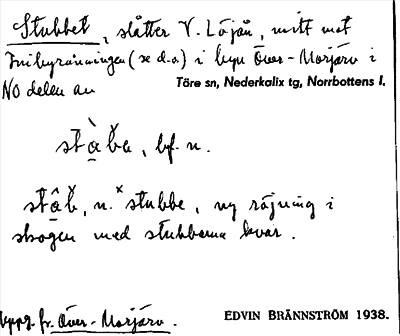 Stubbet, slåtter V. Löjån, mitt mot
Inibyränningen (se d.o) i byn Över-Morjärv i
NO delen av
Töre sn, Nederkalix tg, Norrbottens l.
stàba, bf. n.
stâb, n. stubbe, ny röjning i
skogen med stubbarna kvar.
uppg. fr. Över-Morjärv.
EDVIN BRÄNNSTRÖM 1938.